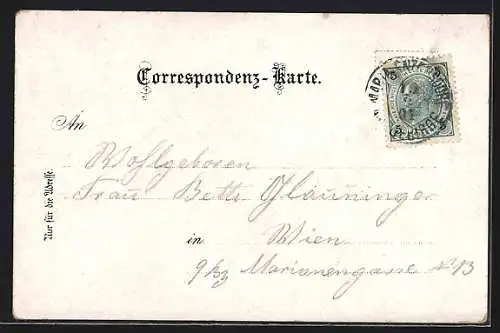 Correspondenz-Karte.
An
Wohlgeboren
Frau Betti Glauninger
in Wien
9/bz Marianengasse № 13
Nur für die Adresse.